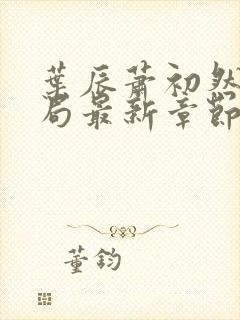 葉辰蕭初然
局最新章節
董鈞